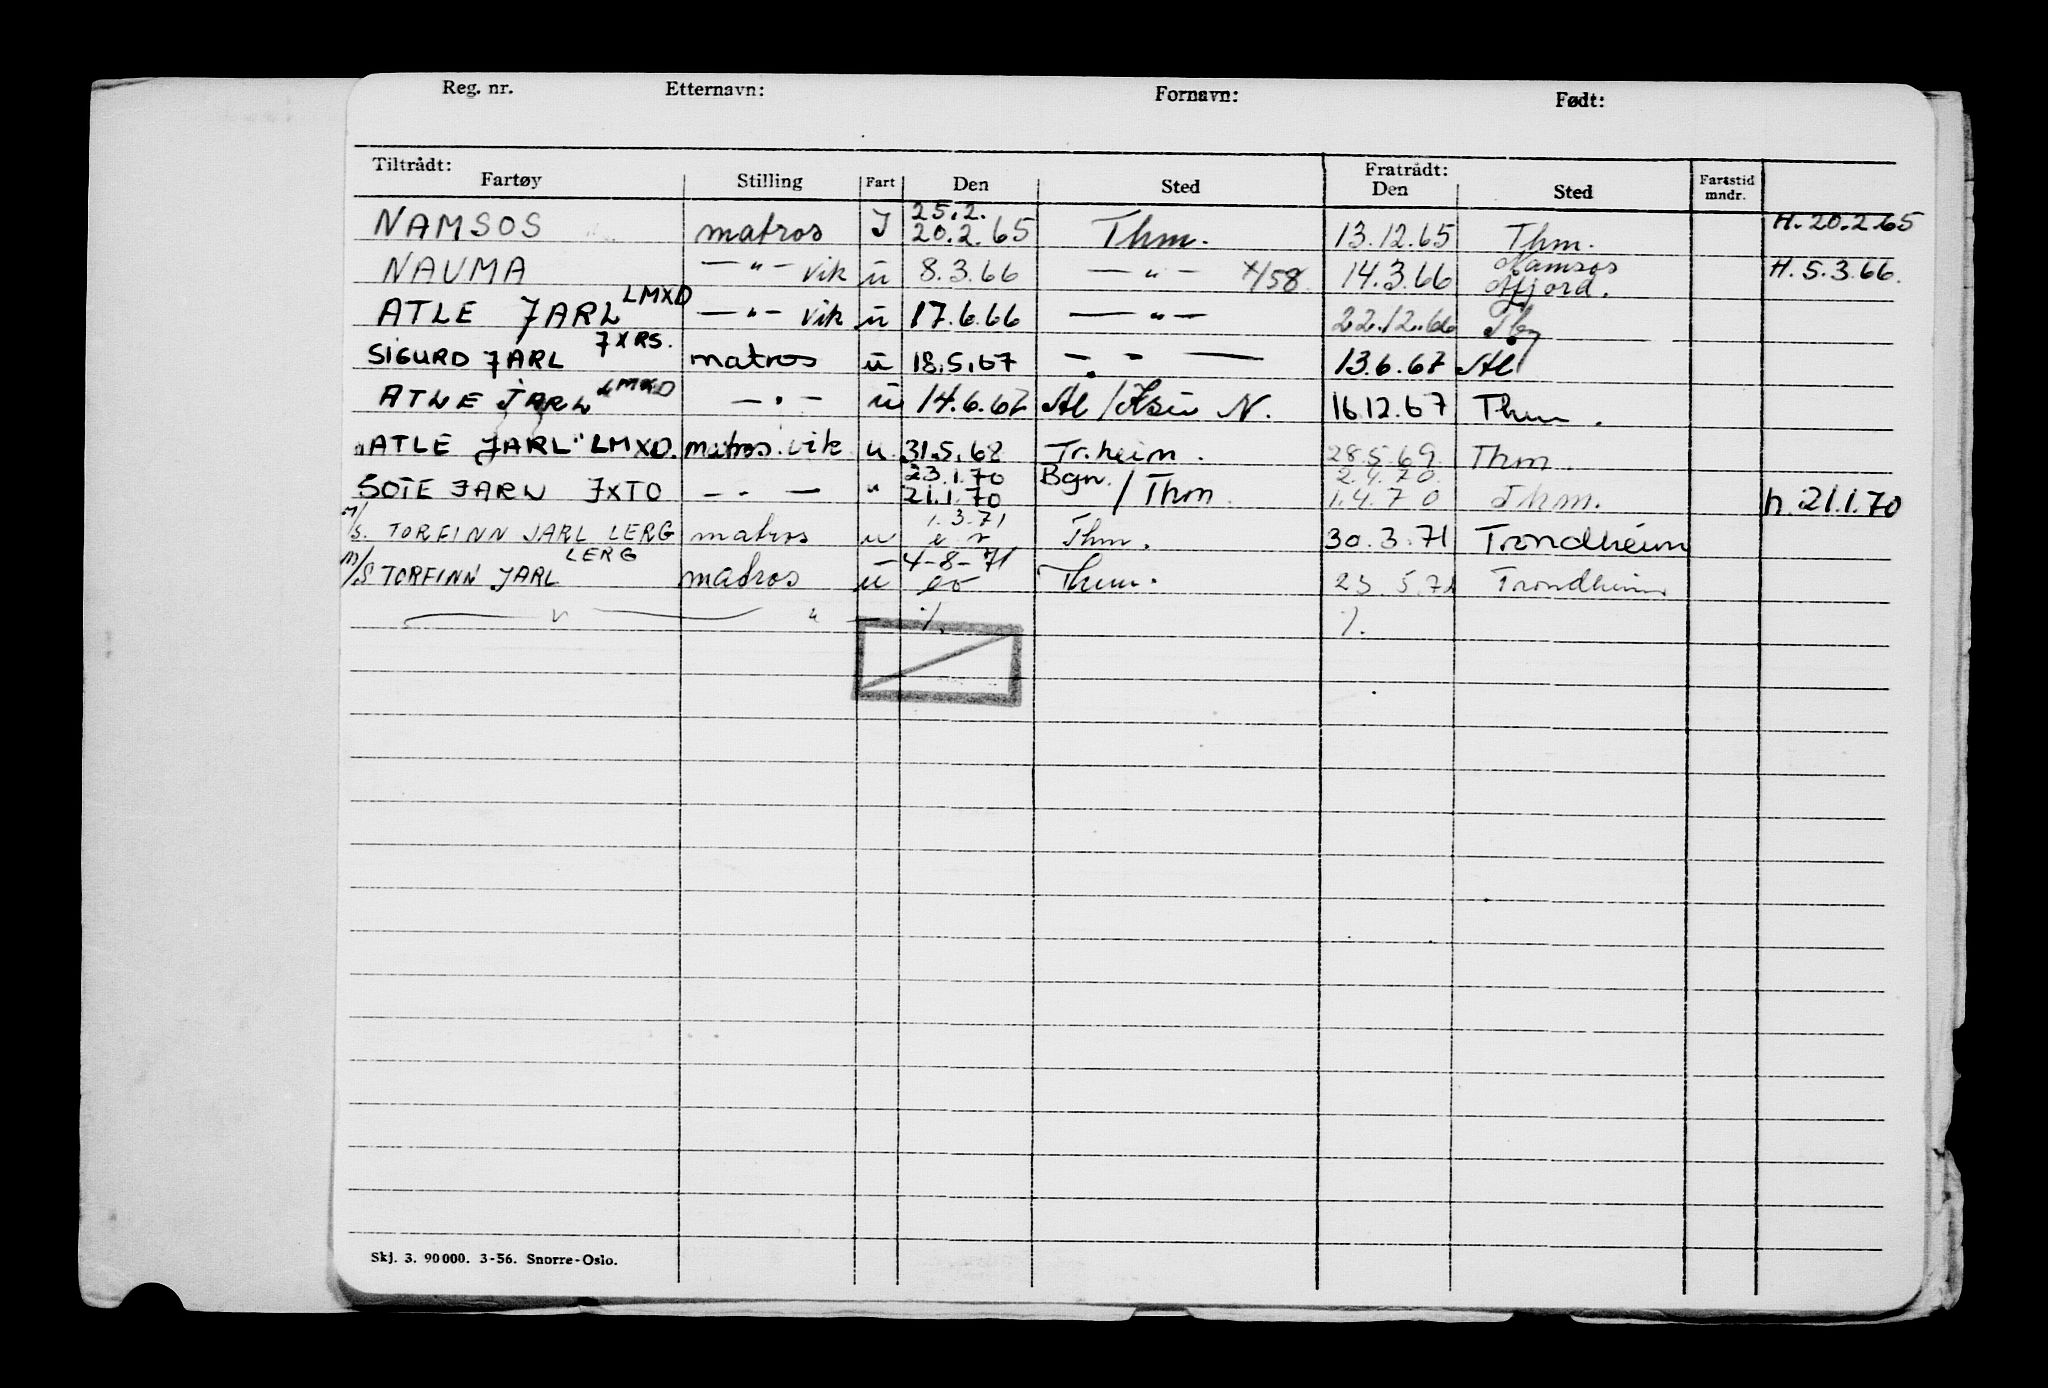 Reg. nr. Etternavn: Fornavn: Født:
Tiltrådt: Fratrådt:
Fartøy Stilling Fart Den Sted Den Sted Fartstid mndr.
25.2.
NAMSOS matros J 20.2.65 Thm. 13.12.65 Thm. H. 20.2.65
Namsos
NAUMA — " — vik ü 8.3.66 — " — X/58 14.3.66 Afjord. H. 5.3.66.
ATLE JARL LMXD — " — vik ü 17.6.66 — " — 22.12.66
SIGURD JARL JXRS. matros ü 18.5.67 — " — 13.6.67 Al
ATLE JARL LMXD — " — ü 14.6.67 Al / N. 16.12.67 Thm.
ATLE JARL" LMXD. matros. vik u 31.5.68 Tr.heim. 28.5.69. Thm.
23.1.70 Bgn. 2.4.70.
SOTE JARL JXTO — " — " 21.1.70 / Thm. 1.4.70 Thm. h. 21.1.70
1.3.71
M/S. TORFINN JARL LERG matros u Thm. 30.3.71 Trondheim
LERG 4-8-71
M/S TORFINN JARL matros ü Thm. 23.5.71 Trondheim
— " — " — %. %.
Skj. 3. 90 000. 3-56. Snorre-Oslo.